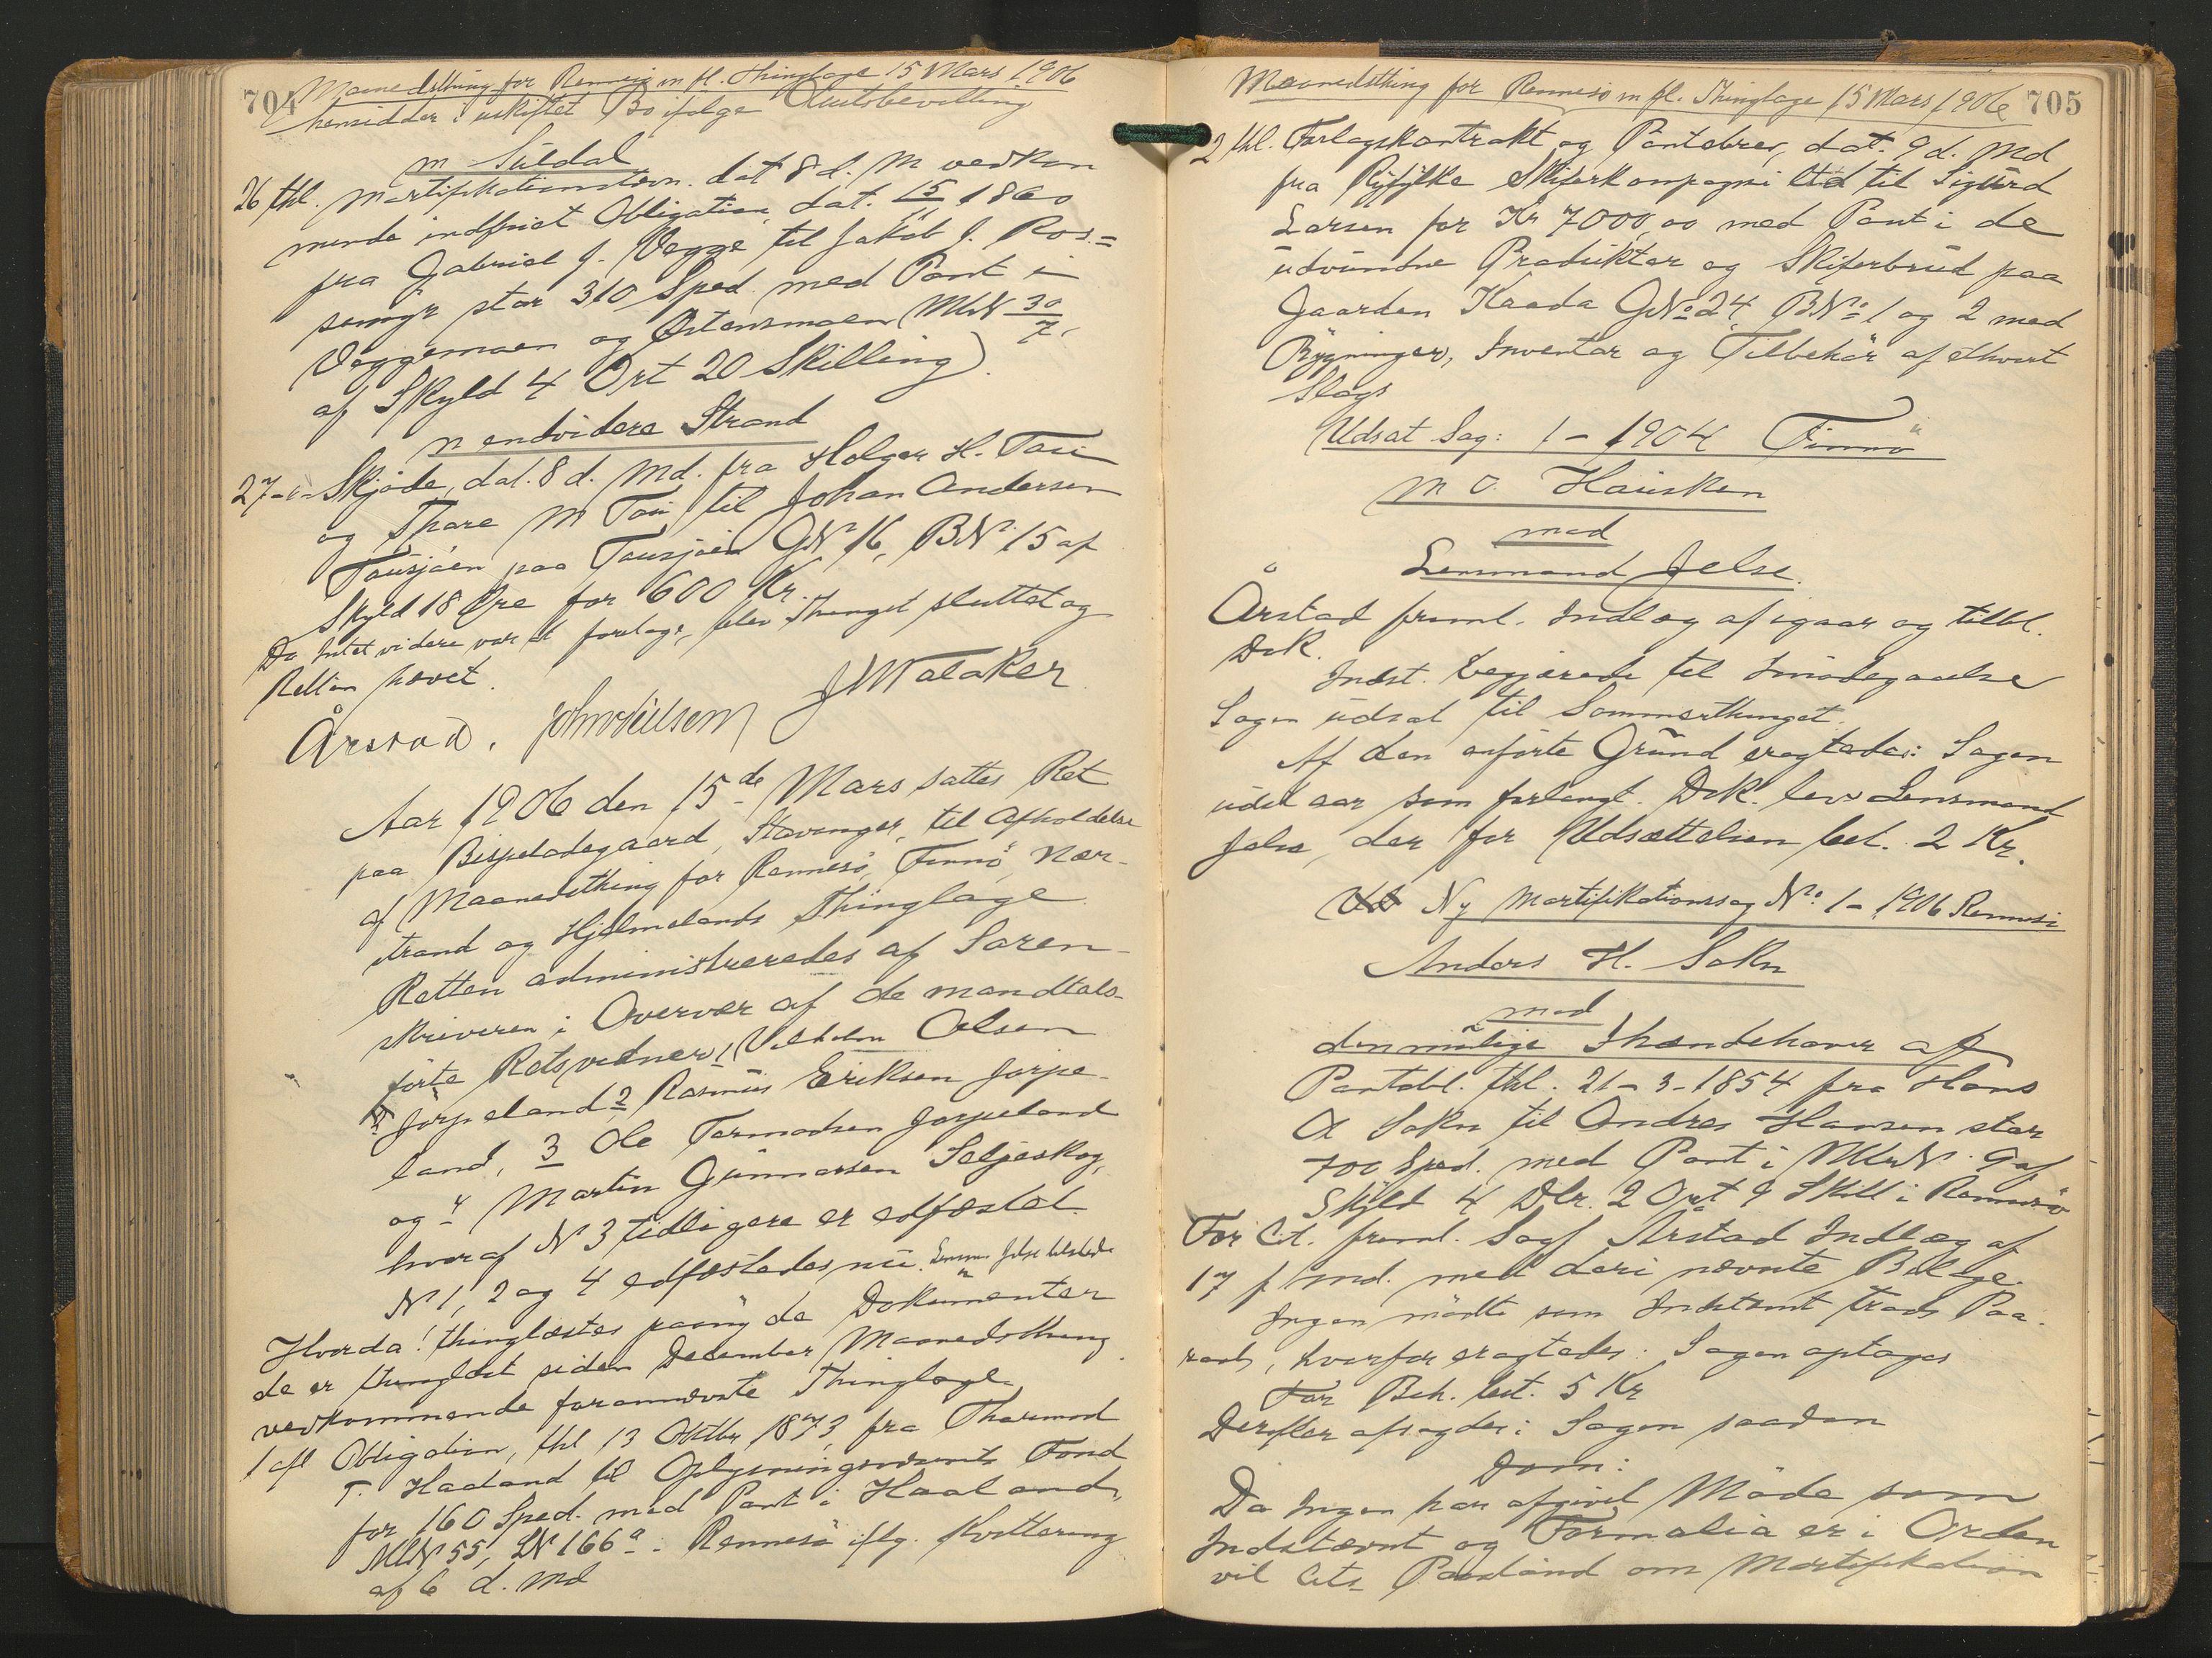 704
Maanedsthing for Rennesö m fl. Thinglage 15 Mars 1906
hensidder i uskiftet Bo ifølge Amtsbevilling
m Suldal
26 thl. Mortifikationsstevn. dat 8 d. M vedkom
mende indfriet Obligation, dat. 15 1860
fra Gabriel J. Vegge til Jakob J. Ros=
stor 310 Sped. med Pant i
Veggemoen og Østensmoen (MNN 30/7,
af Skyld 4 Ort 20 Skilling).
n endvidere Strand
27-"- Skjøde, dat. 8 d. Md. fra Holger H. Tau
og Thore M Tau til Johan Andersen
Tausjøen paa Tausjøen GN 16, BN 15 af
Skyld 18 Øre for 600 Kr.
Da Intet videre var at foretage, blev Thinget sluttet og
Retten hævet.
Årstad. John Nilsen J W Talaker
Aar 1906 den 15de Mars sattes Ret
paa Bispeladegaard, Stavanger, til Afholdelse
af Maanedsthing for Rennesö, Finnö, Nær-
strand og Hjelmelands Thinglage.
Retten administreredes af Soren-
skriveren i Overvær af de mandtals-
førte Retsvidner, 1 Vilhelm Olsen
Jørpeland 2 Rasmus Eriksen Jørpe-
land, 3 Ole Tormodsen Jørpeland
og 4 Martin Gunnarsen Seljeskog,
hvoraf N 3 tidligere er edfæstet.
N 1, 2 og 4 edfæstedes nu. Lensm. Jelse tilstede
Hvorda! thinglæstes paany de Dokumenter
de er thinglæst siden December Maanedsthing
vedkommende forannævnte Thinglage.
1 afl Obligation, thl 13 Oktbr 1873, fra Thormod
T. Haaland til Oplysningsvæsenets Fond
for 160 Sped. med Pant i Haaland,
MN 55, LN 166a i Rennesö iflg. Kvittering
af 6 d. Md
705
Maanedsthing for Rennesö m fl. Thinglage 15 Mars 1906
2 thl. Forlagskontrakt og Pantebrev, dat. 9 d. Md
fra Ryfylke Skiferkompagni Ltd til Sigurd
Larsen for Kr 7000,00 med Pant i de
udvundne Produkter og Skiferbrud paa
Gaarden Kaada GNo 24 BNo 1 og 2 med
Bygninger, Inventar og Tilbehör af ethvert
Slags
Udsat Sag: 1 - 1904 Finnö
M O. Hausken
mod
Lensmand Jelse.
Årstad freml. Indlæg af igaar og tilbl.
Dok.
Indst. begjærede til Imödegaaelse
Sagen udsat til Sommerthinget.
Af den anförte Grund eragtedes: Sagen
udst aar som forlangt. Dok. lev Lensmand
Jelse, der for Udsættelsen bet. 2 Kr.
Ny Mortifikationssag No 1 - 1906 Rennesö
Anders H. Sokn
mod
den mulige Ihændehaver af
Pantobl. thl. 21-3-1854 fra Hans
A Sokn til Andres Hansen stor
700 Sped. med Pant i MNN. 9 af
Skyld 4 Dlr. 2 Ort 9 Skill i Rennesö
For Cit. freml. Sagf Årstad Indlæg af
17 f md. med deri nævnte Bilage.
Ingen mödte som Indstevnt trods Paa-
raab, hvorfor eragtedes: Sagen optages
For Beh. bet. 5 Kr
Derefter afsagdes i Sagen saadan
Dom:
Da Ingen har afgivet Möde som
Indstævnt og Formalia er i Orden
vil Cits Paastand om Mortifikation